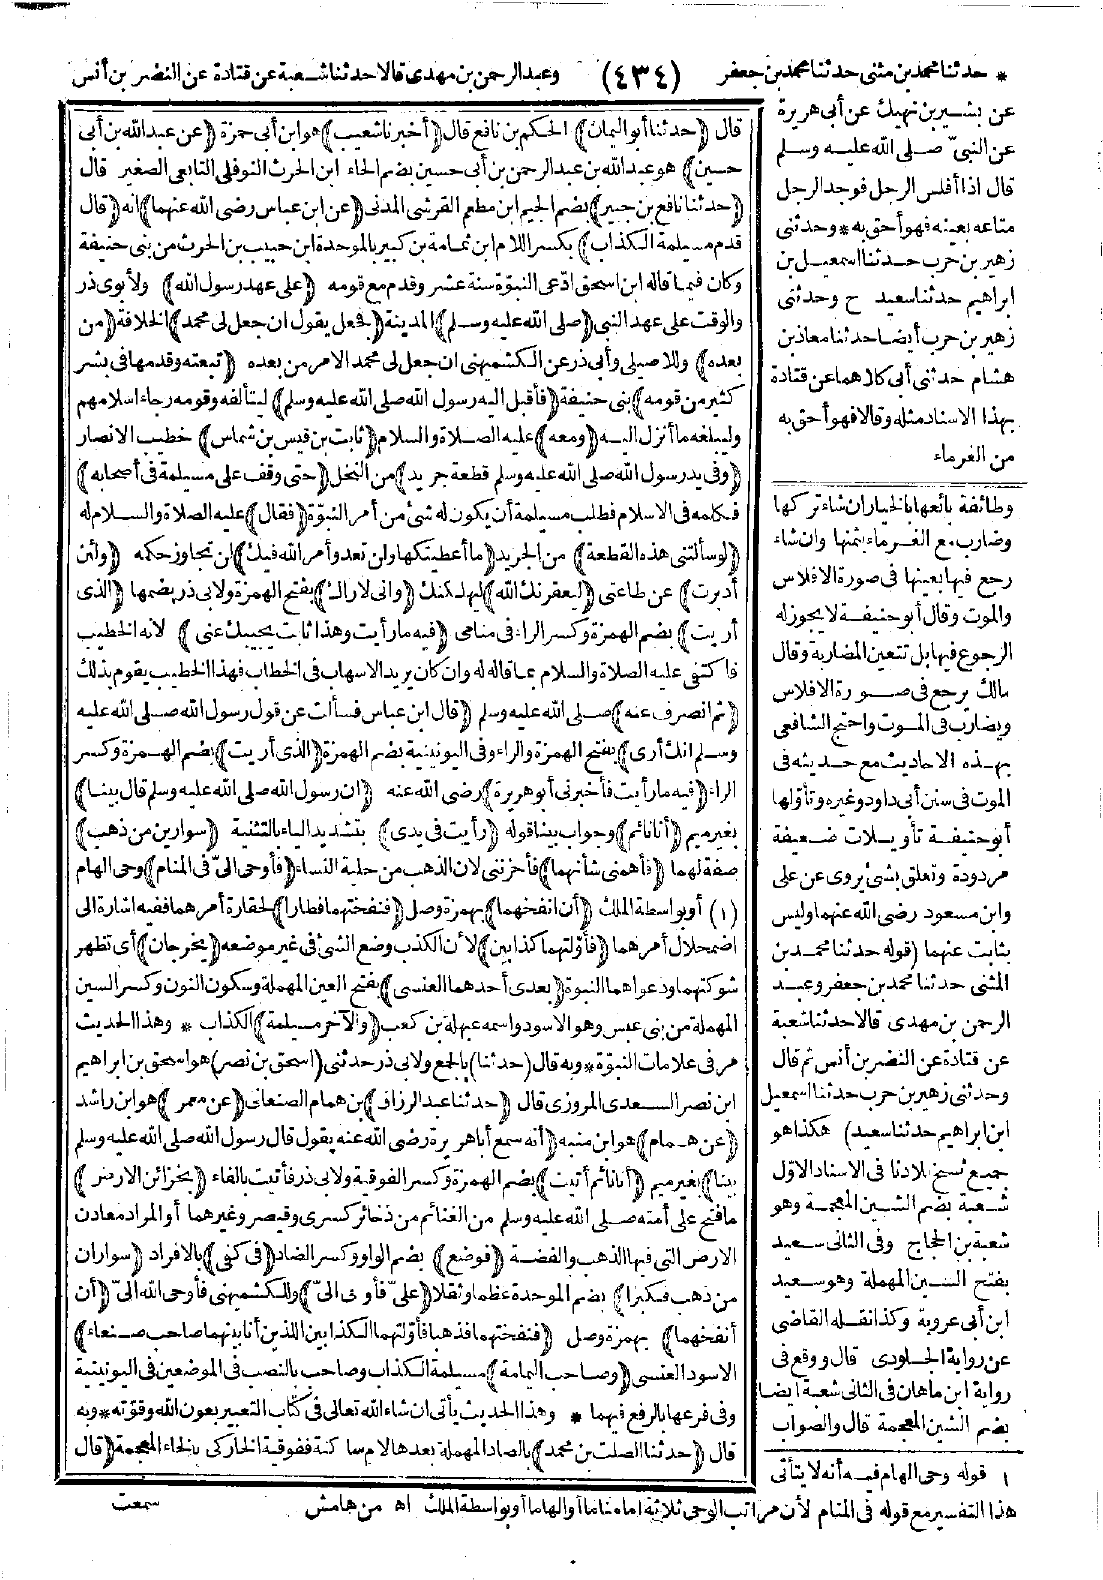 * حدثنا محمد بن مثنى حدثنا محمد بن جعفر (٤٣٤) وعبد الرحمن بن مهدى قالا حدثنا شعبة عن قتادة عن النضر بن أنس
عن بشير بن نهيك عن أبى هريرة
عن النبىّ صلى الله عليه وسلم
قال اذا أفلس الرجل فوجد الرجل
متاعه بعينه فهو أحق به * وحدثنى
زهير بن حرب حدثنا اسمعيل بن
ابراهيم حدثنا سعيد ح وحدثنى
زهير بن حرب أيضا حدثنا معاذ بن
هشام حدثنى أبى كلاهما عن قتادة
بهذا الاسناد مثله وقالا فهو أحق به
من الغرماء
وطائفة بائعها بالخيار ان شاء تركها
وضارب مع الغرماء بثمنها وان شاء
رجع فيها بعينها فى صورة الافلاس
والموت وقال أبو حنيفة لا يجوز له
الرجوع فيها بل تتعين المضاربة وقال
مالك يرجع فى صورة الافلاس
ويضارب فى الموت واحتج الشافعى
بهذه الاحاديث مع حديثه فى
الموت فى سنن أبى داود وغيره وتأولها
أبو حنيفة تأويلات ضعيفة
مردودة وتعلق بشئ يروى عن على
وابن مسعود رضى الله عنهما وليس
بثابت عنهما (قوله حدثنا محمد بن
المثنى حدثنا محمد بن جعفر وعبد
الرحمن بن مهدى قالا حدثنا شعبة
عن قتادة عن النضر بن أنس ثم قال
وحدثنى زهير بن حرب حدثنا اسمعيل
ابن ابراهيم حدثنا سعيد) هكذا هو
جميع نسخ بلادنا فى الاسناد الاوّل
شعبة بضم الشين المعجمة وهو
شعبه بن الحجاج وفى الثانى سعيد
بفتح السين المهملة وهو سعيد
ابن أبى عروبة وكذا نقله القاضى
عن رواية الجلودى قال ووقع فى
رواية ابن ماهان فى الثانى شعبة أيضا
بضم الشين المعجمة قال والصواب
قال (حدثنا أبو اليمان) الحكم بن نافع قال (أخبرنا شعيب) هو ابن أبى حمزة (عن عبد الله بن أبى
حسين) هو عبد الله بن عبد الرحمن بن أبى حسين بضم الحاء ابن الحرث النوفلى التابعى الصغير قال
(حدثنا نافع بن جبير) بضم الجيم ابن مطعم القرشى المدنى (عن ابن عباس رضى الله عنهما) انه (قال
قدم مسيلمة الكذاب) بكسر اللام ابن ثمامة بن كبير بالموحدة ابن حبيب بن الحرث من بنى حنيفة
وكان فيما قاله ابن اسحق ادّعى النبوّة سنة عشر وقدم مع قومه (على عهد رسول الله) ولابوى ذر
والوقت على عهد النبى (صلى الله عليه وسلم) المدينة (فجعل يقول ان جعل لى محمد) الخلافة (من
بعده) وللاصيلى وأبى ذر عن الكشميهنى ان جعل لى محمد الامر من بعده (تبعته وقدمها فى بشر
كثير من قومه) بنى حنيفة (فأقبل اليه رسول الله صلى الله عليه وسلم) ليتألفه وقومه رجاء اسلامهم
وليبلغه ما أنزل اليه (ومعه) عليه الصلاة والسلام (ثابت بن قيس بن شماس) خطيب الانصار
(وفى يد رسول الله صلى الله عليه وسلم قطعة جريد) من النخل (حتى وقف على مسيلمة فى أصحابه)
فكلمه فى الاسلام فطلب مسيلمة أن يكون له شئ من أمر النبوّة (فقال) عليه الصلاة والسلام له
(لو سألتنى هذه القطعة) من الجريد (ما أعطيتكها ولن تعدو أمر الله فيك) لن تجاوز حكمه (ولئن
أدبرت) عن طاعتى (ليعقرنك الله) ليهلكنك (وانى لاراك) بفتح الهمزة ولابى ذر بضمها (الذى
أريت) بضم الهمزة وكسر الراء فى منامى (فيه ما رأيت وهذا ثابت يجيبك عنى) لانه الخطيب
فاكتفى عليه الصلاة والسلام عما قاله له وان كان يريد الاسهاب فى الخطاب فهذا الخطيب يقوم بذلك
(ثم انصرف عنه) صلى الله عليه وسلم (قال ابن عباس فسألت عن قول رسول الله صلى الله عليه
وسلم انك أرى) بفتح الهمزة والراء وفى اليونينية بضم الهمزة (الذى أريت) بضم الهمزة وكسر
الراء (فيه ما رأيت فأخبرنى أبو هريرة) رضى الله عنه (ان رسول الله صلى الله عليه وسلم قال بينا)
بغير ميم (أنا نائم) وجواب بينا قوله (رأيت فى يدى) بتشديد الياء بالتثنية (سوارين من ذهب)
صفة لهما (فأهمنى شأنهما) فأحزننى لان الذهب من حلية النساء (فأوحى الىّ فى المنام) وحى الهام
(١) أو بواسطة الملك (أن انفخهما) بهمزة وصل (فنفختهما فطارا) لحقارة أمرهما ففيه اشارة الى
اضمحلال أمرهما (فأوّلتهما كذابين) لأن الكذب وضع الشئ فى غير موضعه (يخرجان) أى تظهر
شوكتهما ودعواهما النبوة (بعدى أحدهما العنسى) بفتح العين المهملة وسكون النون وكسر السين
المهملة من بنى عبس وهو الاسود واسمه عبهلة بن كعب (والآخر مسيلمة) الكذاب * وهذا الحديث
مر فى علامات النبوّة * وبه قال (حدثنا) بالجمع ولابى ذر حدثنى (اسحق بن نصر) هو اسحق بن ابراهيم
ابن نصر السعدى المروزى قال (حدثنا عبد الرزاق) بن همام الصنعانى (عن معمر) هو ابن راشد
(عن همام) هو ابن منبه (أنه سمع أبا هريرة رضى الله عنه يقول قال رسول الله صلى الله عليه وسلم
بينا) بغير ميم (أنا نائم أتيت) بضم الهمزة وكسر الفوقية ولابى ذر فأتيت بالفاء (بخزائن الارض)
ما فتح على أمته صلى الله عليه وسلم من الغنائم من ذخائر كسرى وقيصر وغيرهما أو المراد معادن
الارض التى فيها الذهب والفضة (فوضع) بضم الواو وكسر الضاد (فى كفى) بالافراد (سواران
من ذهب فكبرا) بضم الموحدة عظما وثقلا (علىّ فأوحى الىّ) وللكشميهنى فأوحى الله الىّ (أن
أنفخهما) بهمزة وصل (فنفختهما فذهبا فأوّلتهما الكذابين اللذين أنا بينهما صاحب صنعاء)
الاسود العنسى (وصاحب اليمامة) مسيلمة الكذاب وصاحب بالنصب فى الموضعين فى اليونينية
وفى فرعها بالرفع فيهما * وهذا الحديث يأتى ان شاء الله تعالى فى كتاب التعبير بعون الله وقوّته * وبه
قال (حدثنا الصلت بن محمد) بالصاد المهملة بعدها لام ساكنة ففوقية الخاركى بالخاء المعجمة (قال
١ قوله وحى الهام فيه أنه لا يتأتى
هذا التفسير مع قوله فى المنام لأن مراتب الوحى ثلاثة اما مناما أو الهاما أو بواسطة الملك اه من هامش
سمعت